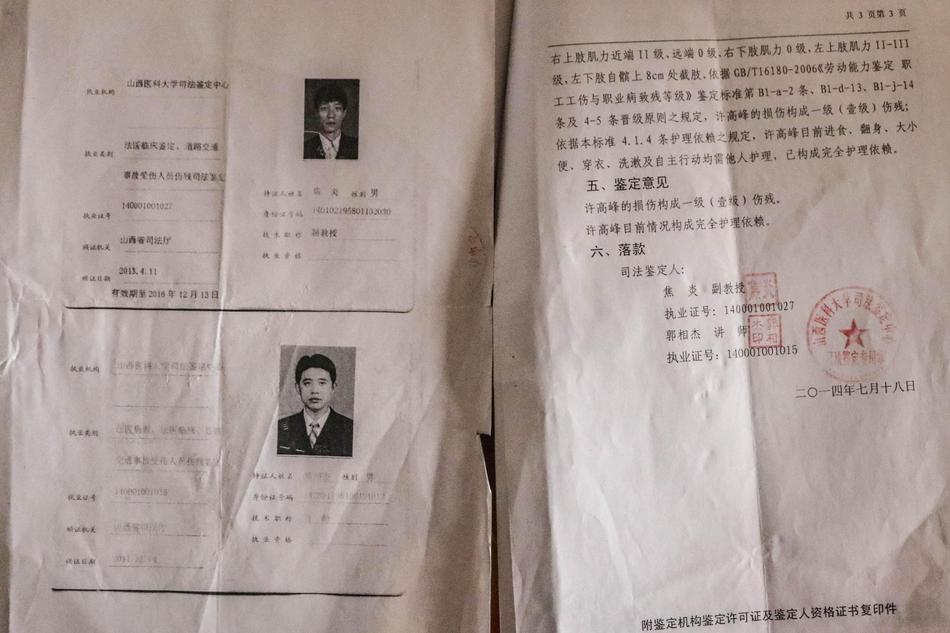 执业机构 山西医科大学司法鉴定中心
执业类别 法医临床鉴定、道路交通
事故受伤人员伤残司法鉴定
执业证号 140001001027
颁证机关 山西省司法厅
颁证日期 2013.4.11
有效期至2016年12月13日
持证人姓名 焦炎 性别 男
身份证号码
技术职称 副教授
执业资格
执业机构 山西医科大学司法鉴定中心
执业类别
交通事故受伤人员伤残
执业证号
颁证机关
颁证日期
持证人姓名 性别 男
身份证号码
技术职称
执业资格
共3页第3页
右上肢肌力近端II级,远端0级,右下肢肌力0级,左上肢肌力II-III
级,左下肢自髌上8cm处截肢.依据GB/T16180-2006《劳动能力鉴定 职
工工伤与职业病致残等级》鉴定标准第B1-a-2条、B1-d-13、B1-j-14
条及4-5条晋级原则之规定,许高峰的损伤构成一级(壹级)伤残;
依据本标准4.1.4条护理依赖之规定,许高峰目前进食、翻身、大小
便、穿衣、洗漱及自主行动均需他人护理,已构成完全护理依赖。
五、鉴定意见
许高峰的损伤构成一级(壹级)伤残。
许高峰目前情况构成完全护理依赖。
六、落款
司法鉴定人:
焦 炎 副教授
执业证号:140001001027
郭相杰 讲 师
执业证号:140001001015
山西医科大学司法鉴定中心
二〇一四年七月十八日
附鉴定机构鉴定许可证及鉴定人资格证书复印件